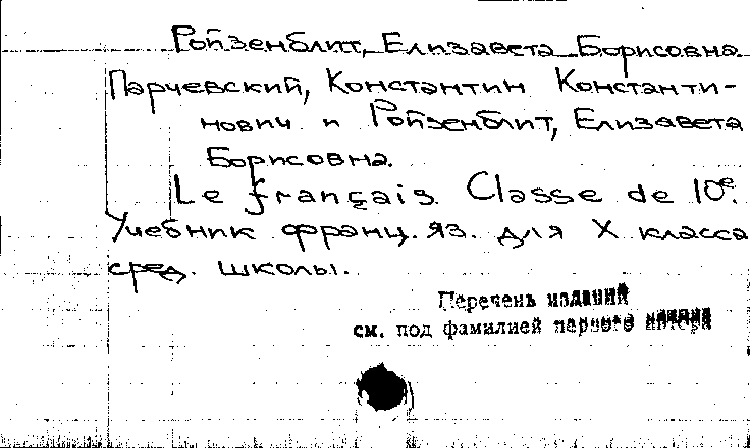 Ройзенблит, Елизавета Борисовна.
Парчевский, Константин Константи-
нович и Ройзенблит, Елизавета
Борисовна.
Le français. Classe de 10e.
Учебник франц. яз. для X класса
сред. школы.
Перечень изданий
см. под фамилией первого автора